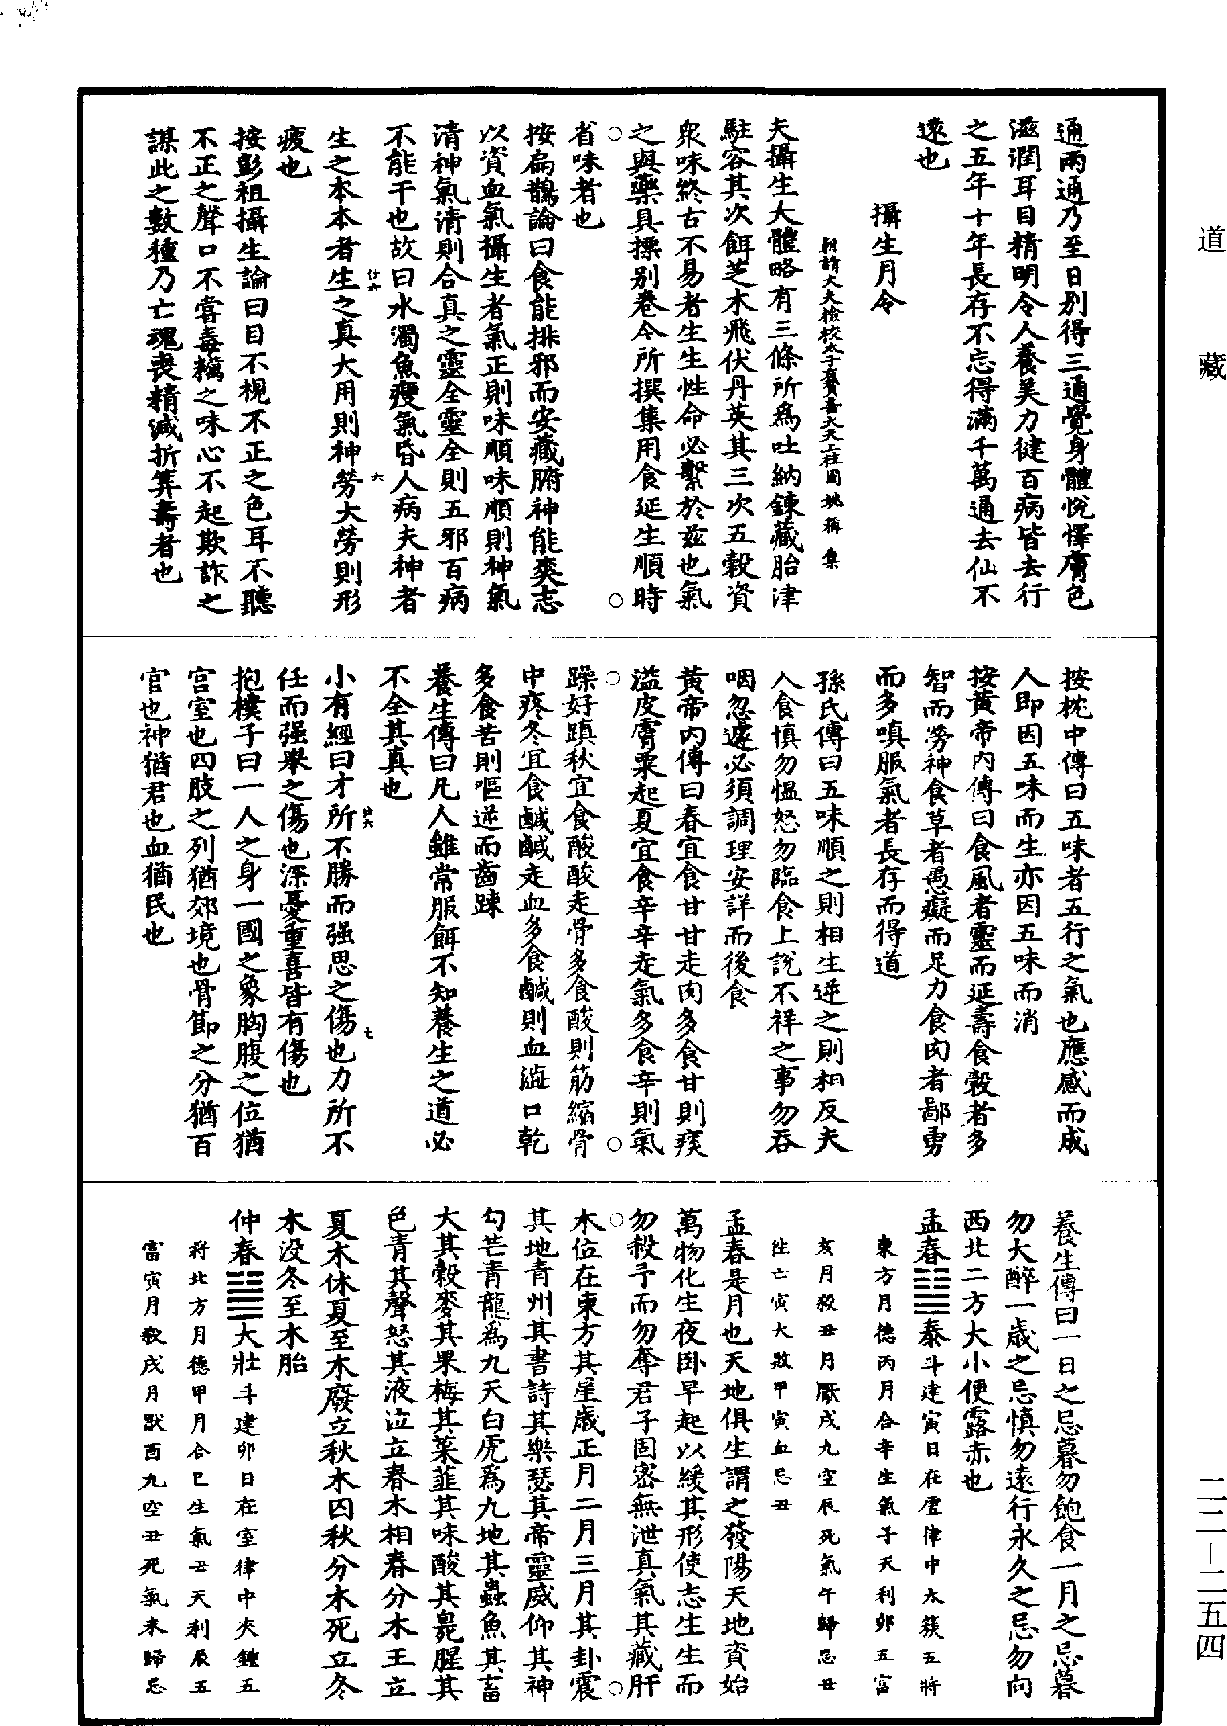 道藏
通兩通乃至日別得三通覺身體悅懌膚色
滋潤耳目精明令人養美力健百病皆去行
之五年十年長存不忘得滿千萬通去仙不
遠也
攝生月令
朝請大夫檢校太子賓善大夫上柱國姚稱集
夫攝生大體略有三條所為吐納鍊藏胎津
駐容其次餌芝朮飛伏丹英其三次五穀資
衆味終古不易者生生性命必繫於茲也氣
之與藥具撰別卷今所撰集用食延生順時
省味者也
按扁鵲論曰食能排邪而安藏腑神能爽志
以資血氣攝生者氣正則味順味順則神氣
清神氣清則合真之靈全靈全則五邪百病
不能干也故曰水濁魚瘦氣昏人病夫神者
生之本本者生之真大用則神勞大勞則形
疲也
按彭祖攝生論曰目不視不正之色耳不聽
不正之聲口不嘗毒糲之味心不起欺詐之
謀此之數種乃亡魂喪精減折筭壽者也
按枕中傳曰五味者五行之氣也應感而成
人即因五味而生亦因五味而消
按黃帝內傳曰食風者靈而延壽食穀者多
智而勞神食草者愚癡而足力食肉者鄙勇
而多嗔服氣者長存而得道
孫氏傳曰五味順之則相生逆之則相反夫
人食慎勿慍怒勿臨食上說不祥之事勿吞
咽忽遽必須調理安詳而後食
黃帝內傳曰春宜食甘甘走肉多食甘則痰
溢皮膚粟起夏宜食辛辛走氣多食辛則氣
躁好蹎秋宜食酸酸走骨多食酸則筋縮骨
中疼冬宜食鹹鹹走血多食鹹則血澁口乾
多食苦則嘔逆而齒踈
養生傳曰凡人雖常服餌不知養生之道必
不全其真也
小有經曰才所不勝而强思之傷也力所不
任而强舉之傷也深憂重喜皆有傷也
抱樸子曰一人之身一國之象胸腹之位猶
宮室也四肢之列猶郊境也骨節之分猶百
官也神猶君也血猶民也
養生傳曰一日之忌暮勿飽食一月之忌暮
勿大醉一歲之忌慎勿遠行永久之忌勿向
西北二方大小便露赤也
孟春䷊泰斗建寅日在虛律中太簇五將
東方月德丙月合辛生氣子天利卯五富
亥月殺丑月厭戌九空辰死氣午歸忌丑
往亡寅大敗甲寅血忌丑
孟春是月也天地俱生謂之發陽天地資始
萬物化生夜卧早起以緩其形使志生生而
勿殺予而勿奪君子固密無泄真氣其藏肝
木位在東方其星歲正月二月三月其卦震
其地青州其書詩其樂瑟其帝靈威仰其神
勾芒青龍為九天白虎為九地其蟲魚其畜
犬其穀麥其果梅其菜韮其味酸其臭腥其
色青其聲怒其液泣立春木相春分木王立
夏木休夏至木廢立秋木囚秋分木死立冬
木没冬至木胎
仲春䷡大壯斗建卯日在室律中夾鍾五
將北方月德甲月合巳生氣丑天利辰五
富寅月殺戌月厭酉九空丑死氣未歸忌
二二–二五四